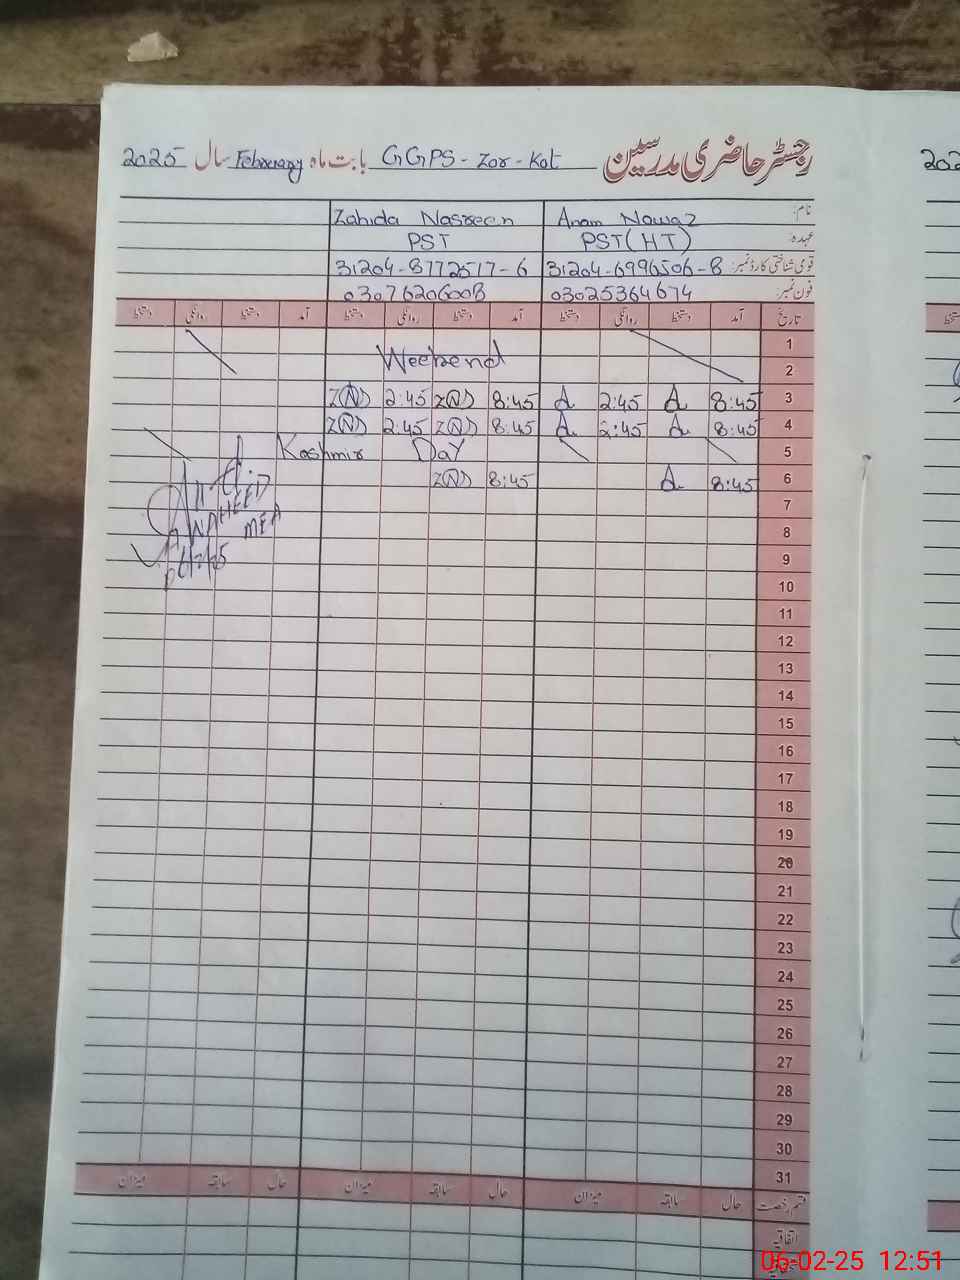 رجسٹر حاضری مدرسین GGPS - Zor - Kot بابت ماہ February سال 2025
نام: Anam Nawaz Zahida Nasreen
عہدہ: PST(HT) PST
قومی شناختی کارڈ نمبر: 31204-6996506-8 31204-8772517-6
فون نمبر: 03025364674 03076206008
تاریخ آمد دستخط روانگی دستخط آمد دستخط روانگی دستخط آمد دستخط روانگی دستخط
1
2 Weekend
3 8:45 A 2:45 A 8:45 Z(N) 2:45 Z(N)
4 8:45 A 2:45 A 8:45 Z(N) 2:45 Z(N)
5 Kashmir Day
6 8:45 A 8:45 Z(N)
7
WAHEED
8
MEA
9
10
11
12
13
14
15
16
17
18
19
20
21
22
23
24
25
26
27
28
29
30
31
قسم رخصت حال سابقہ میزان حال سابقہ میزان حال سابقہ میزان
اتفاقیہ
202
06-02-25 12:51